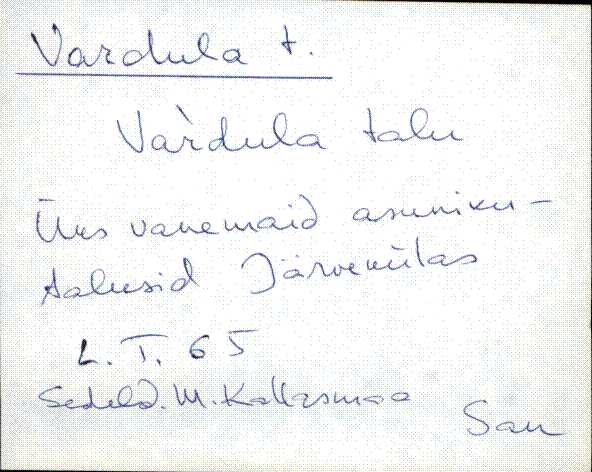 Vardula t.
Var̀dula talu
Üks vanemaid asuniku-
talusid Järvekülas
L. T. 65
Sedeld. M. Kallasmaa
San